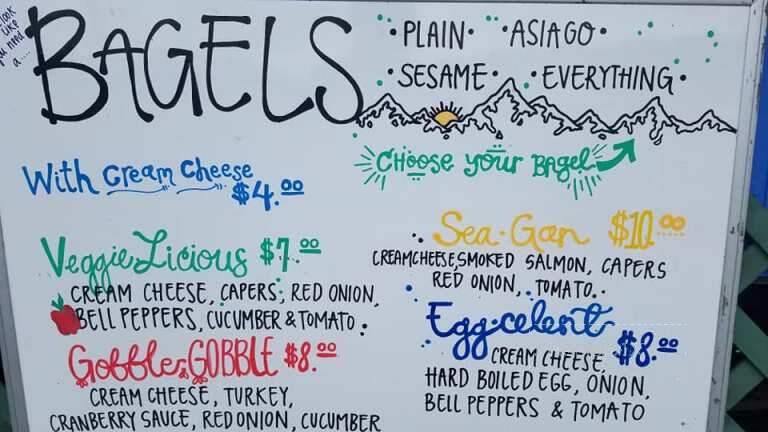 look
like
you need
a....
BAGELS
• PLAIN • ASIAGO •
• SESAME • • EVERYTHING •
Choose your Bagel
With Cream Cheese
$4.00
Veggie Licious $7.00
CREAM CHEESE, CAPERS, RED ONION,
BELL PEPPERS, CUCUMBER & TOMATO.
Gobble, GOBBLE $8.00
CREAM CHEESE, TURKEY,
CRANBERRY SAUCE, RED ONION, CUCUMBER
Sea-Gan $10.00
CREAMCHEESE, SMOKED SALMON, CAPERS
RED ONION, TOMATO.
Egg-celent
$8.00
CREAM CHEESE,
HARD BOILED EGG, ONION,
BELL PEPPERS & TOMATO